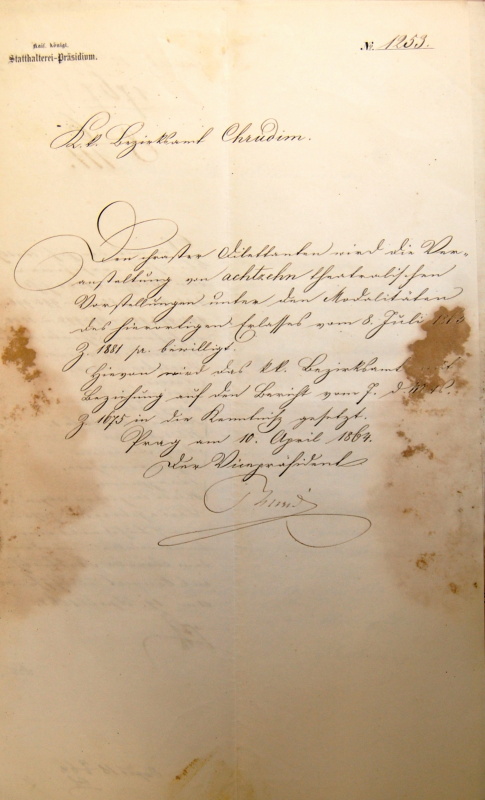 Kais. königl.
Statthalterei-Präsidium.
№ 1253.
K. k. Bezirksamt Chrudim.
Den chraster Dilettanten wird die Ver-
anstaltung von achtzehn theatralischen
Vorstellungen unter den Modalitäten
des hierortigen Erlasses vom 8. Juli
Z 1881 pr. bewilligt.
Hievon wird das kk. Bezirksamt mit
Beziehung auf den Bericht vom 7. d. M.
Z 1675 in die Kenntniß gesetzt.
Prag am 10. April 1864.
Der Vicepräsident